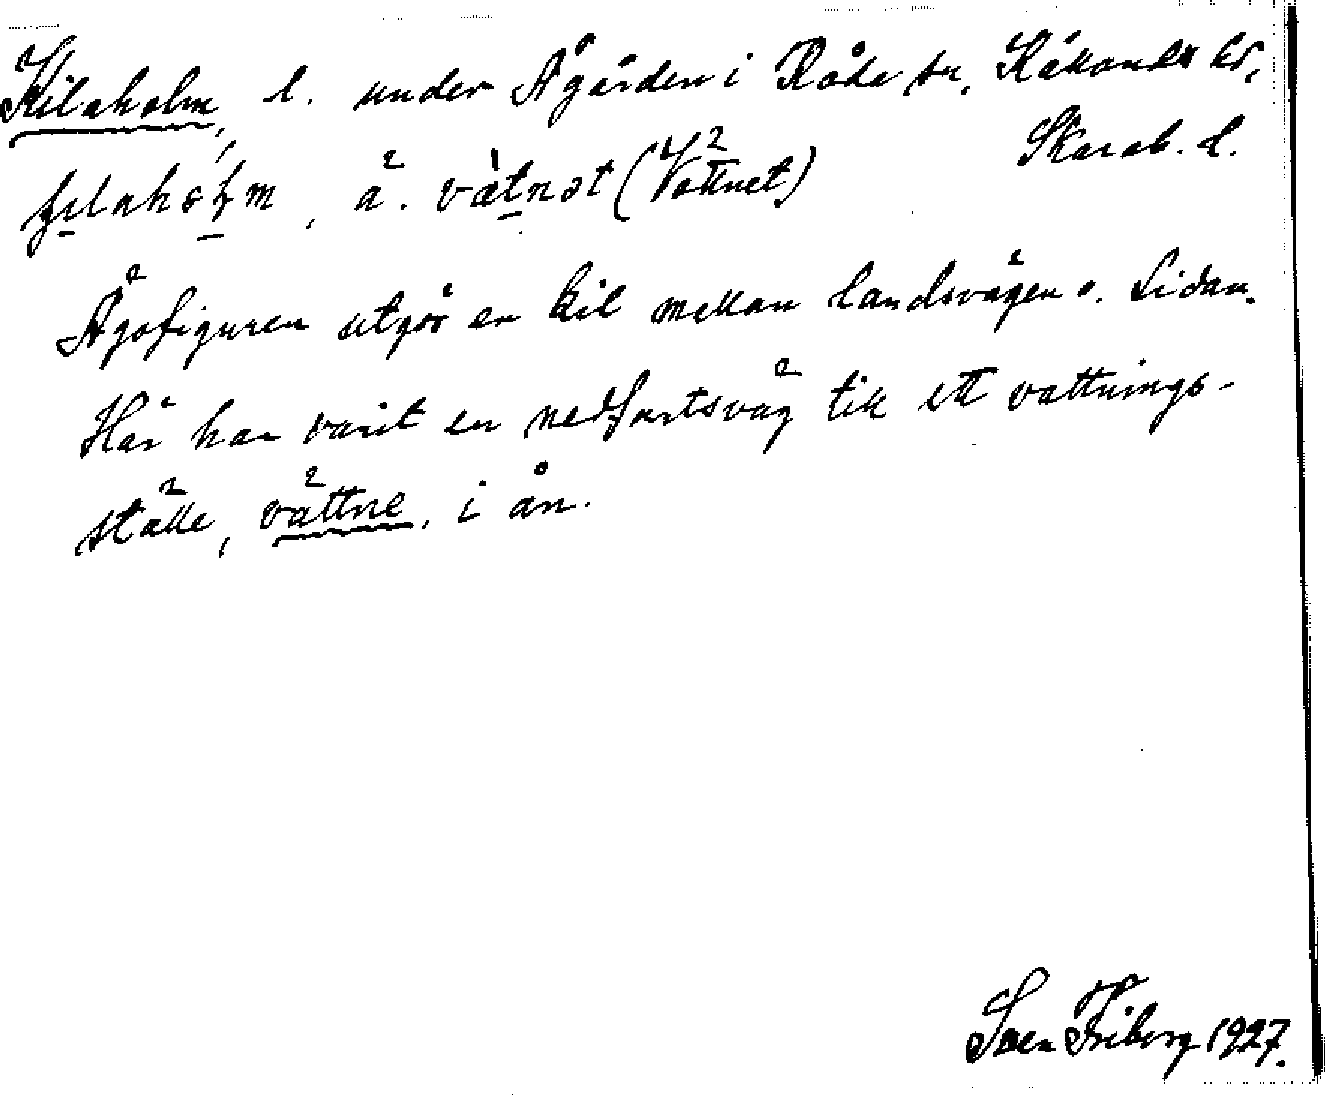 Kilaholm, l. under Ågården i Råda sn, Kållands hd,
Skarab. l.
ä. vätnət (Vättnet)
Ägofiguren utgör en kil mellan landsvägen o. Lidan.
Här har varit en nedfartsväg till ett vattnings-
ställe, vättne, i ån.
Sven Friberg 1927.